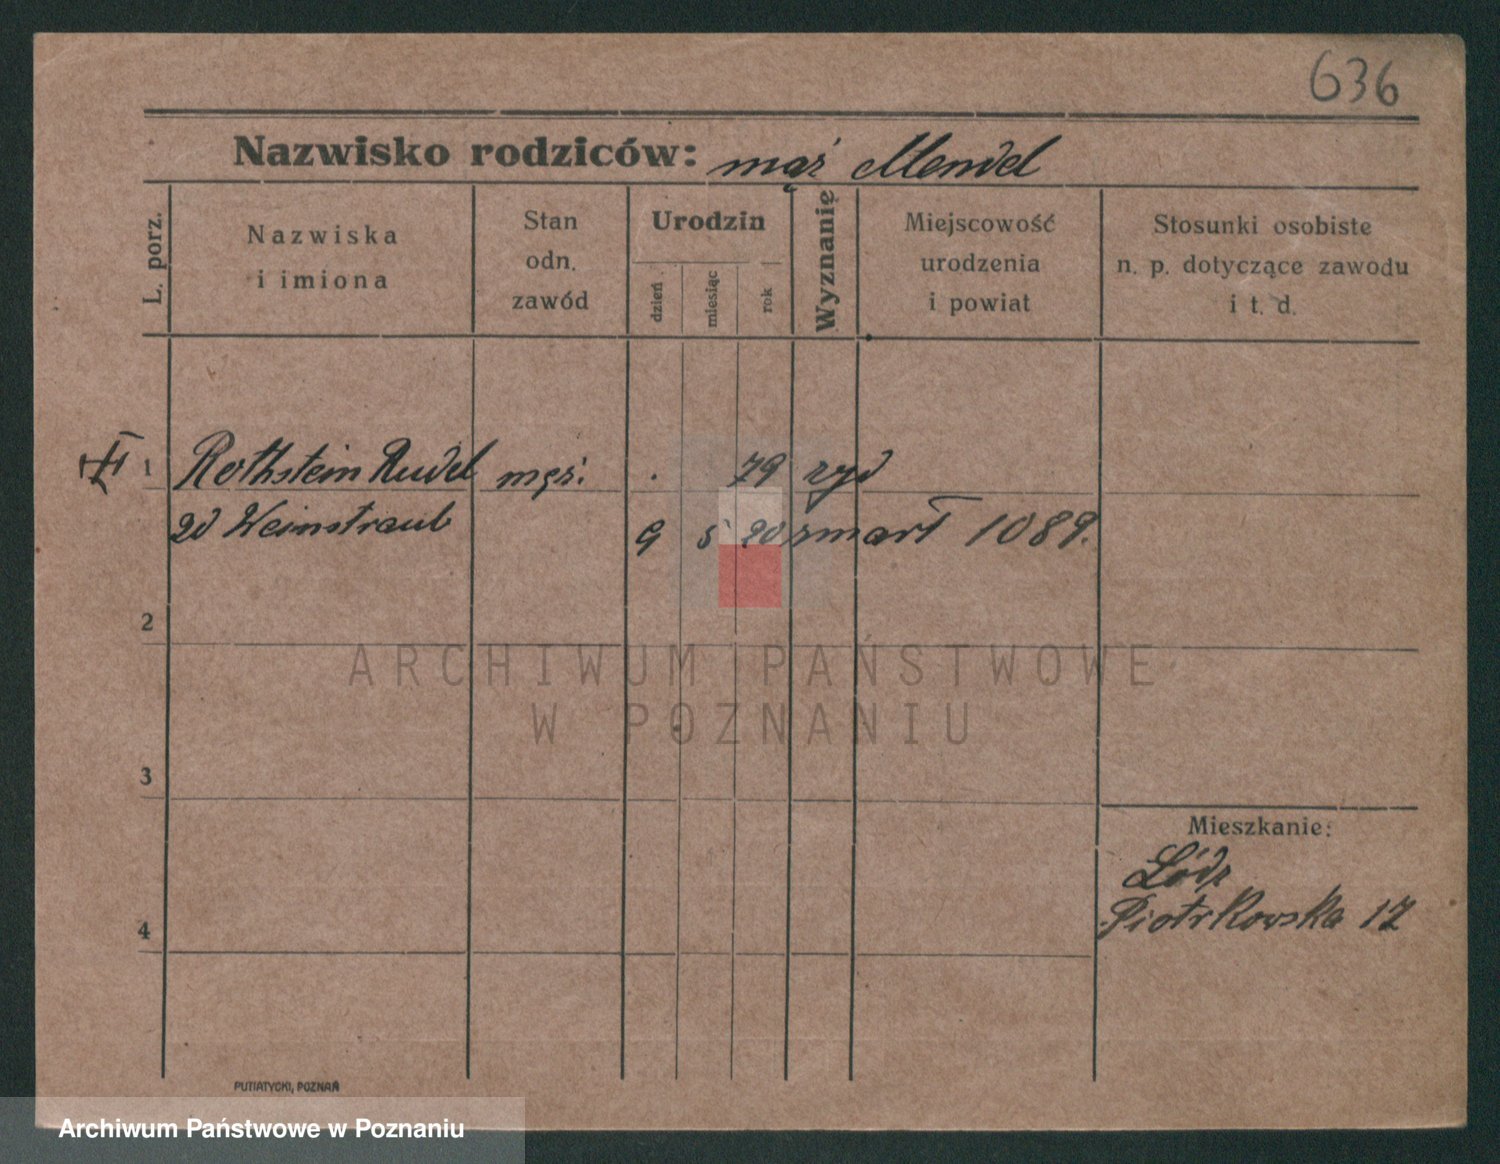 636
Nazwisko rodziców: mąż Mendel
L. porz.
Nazwiska i imiona
Stan odn. zawód
Urodzin
dzień
miesiąc
rok
Wyznanie
Miejscowość urodzenia i powiat
Stosunki osobiste n. p. dotyczące zawodu i t. d.
1 Rothstein Rudel męż. . 79 żyd
zd Weinstraub 9 5 20 zmarł 1089.
2
ARCHIWUM PAŃSTWOWE
W POZNANIU
3
Mieszkanie:
Łódz
4
Piotrkowska 17
PUTIATYCKI, POZNAŃ
Archiwum Państwowe w Poznaniu